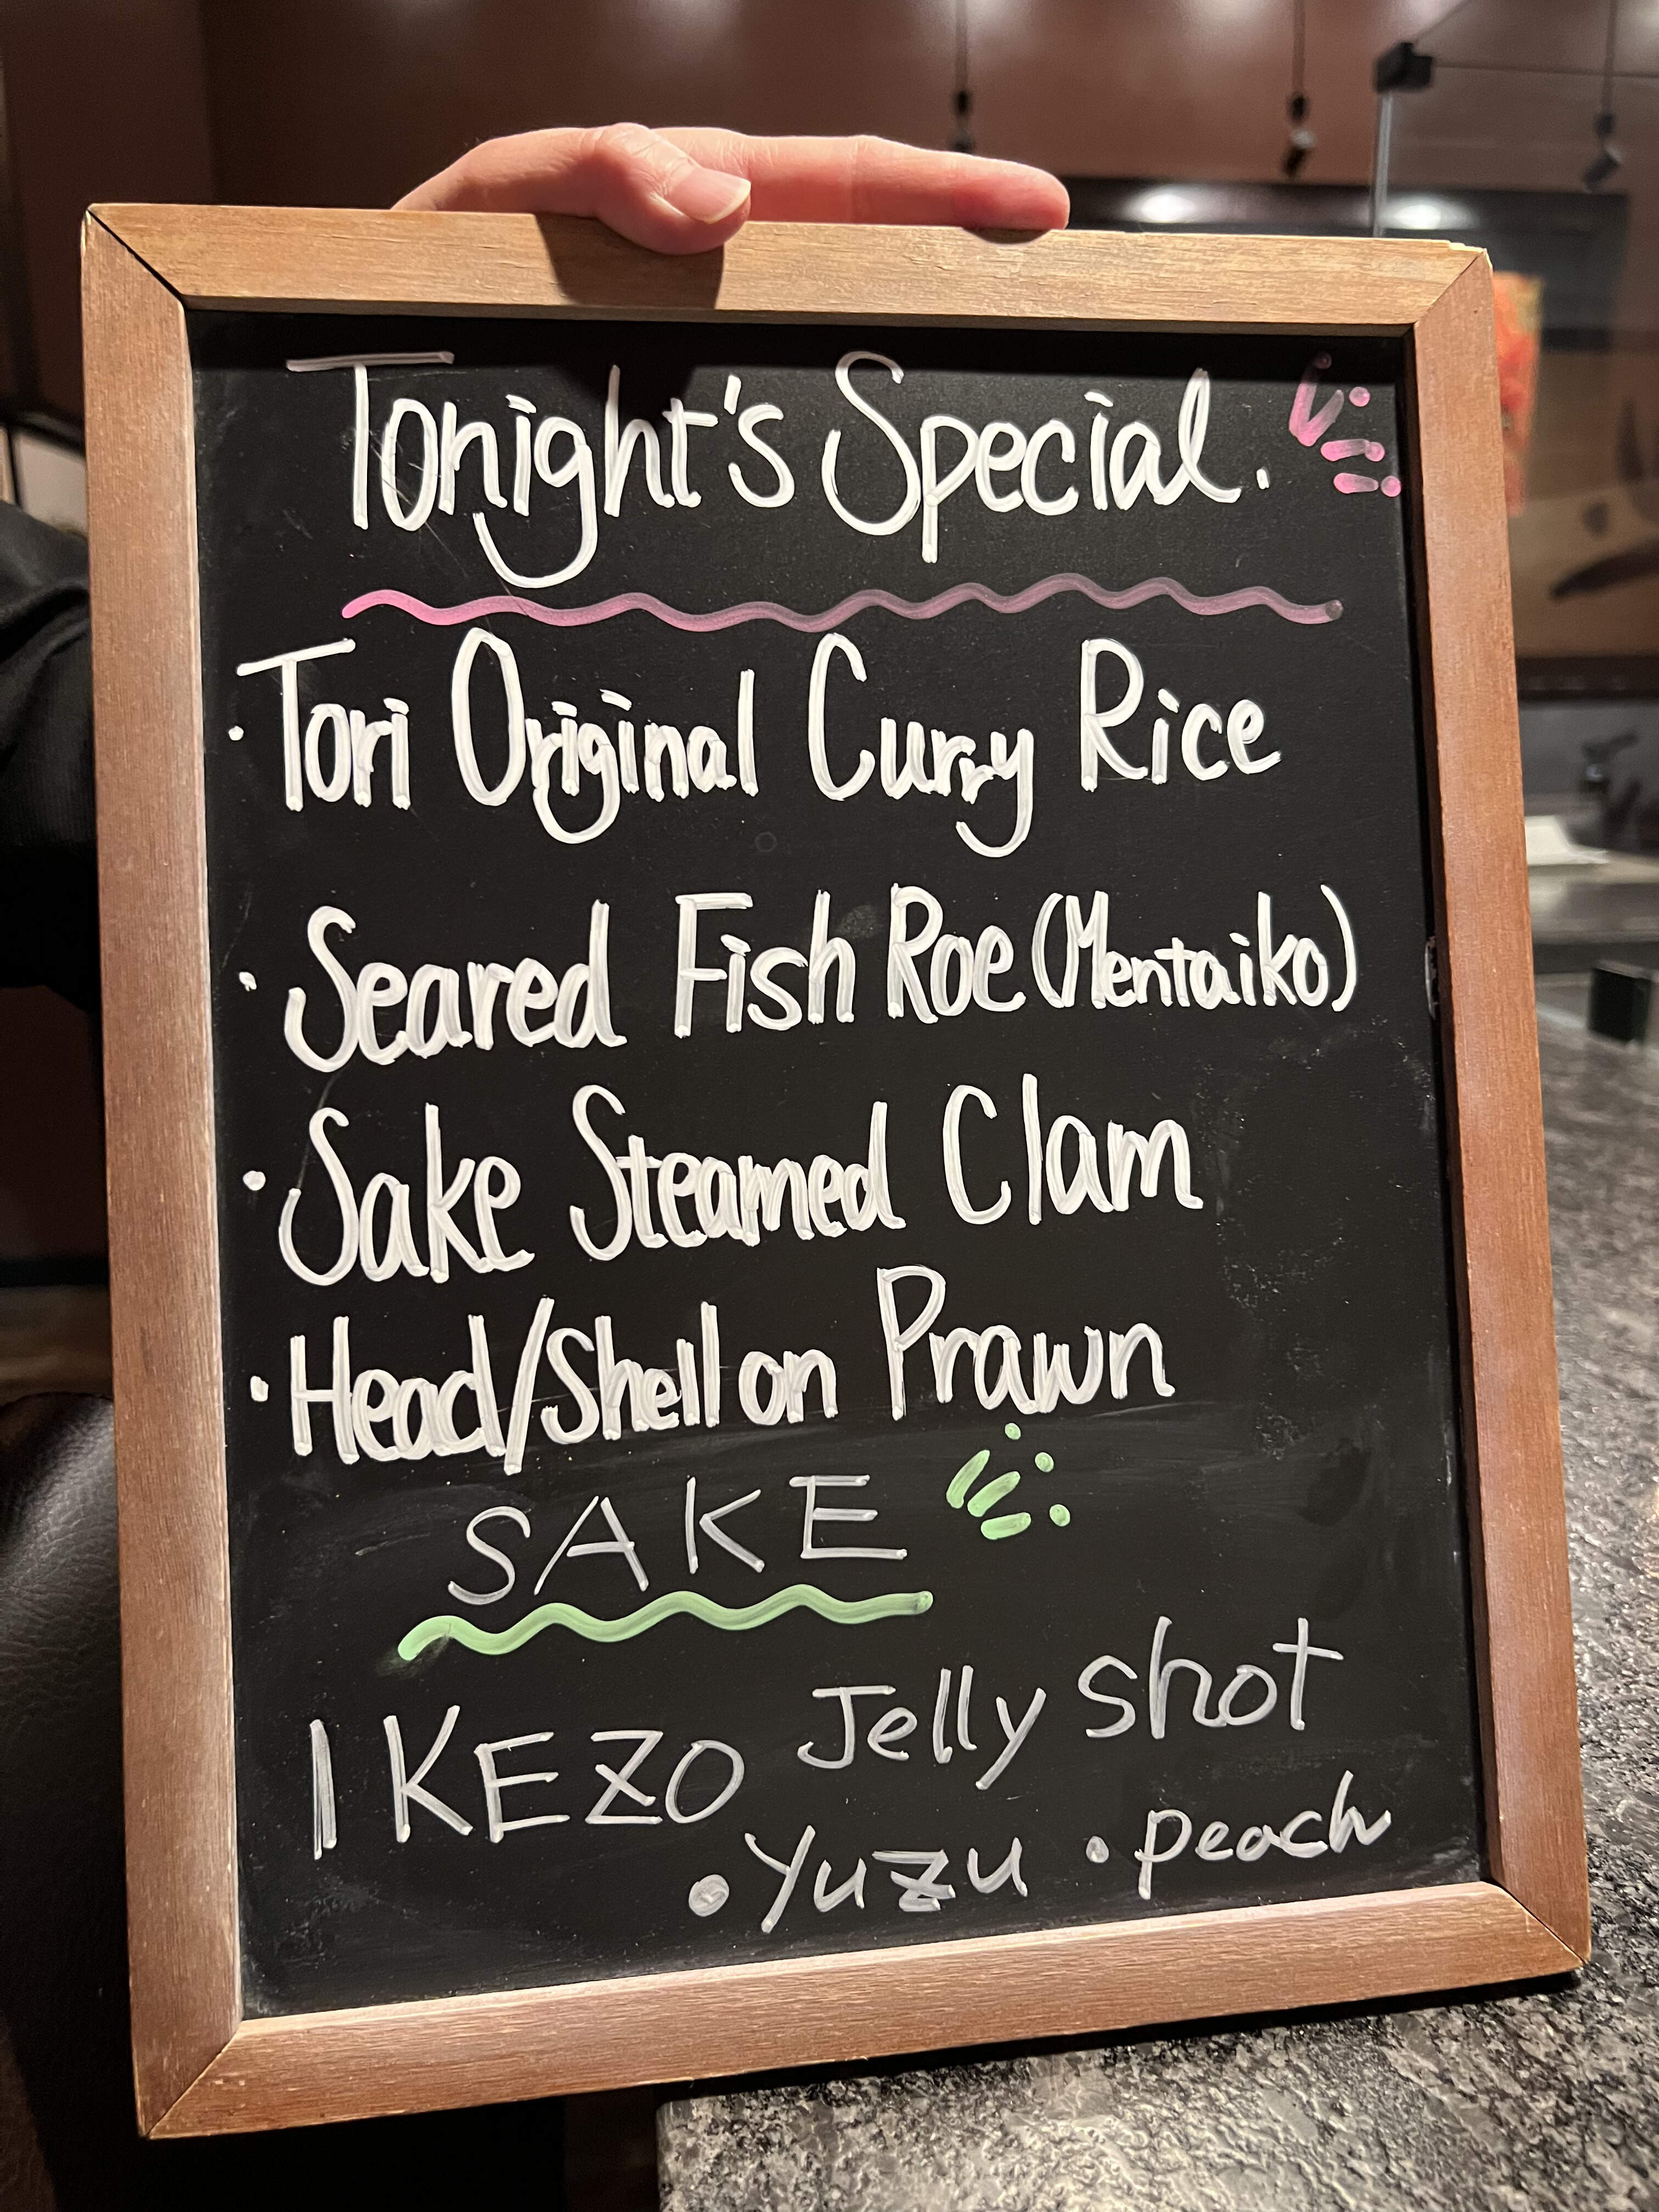 Tonight's Special.
·Tori Original Curry Rice
·Seared Fish Roe (Mentaiko)
·Sake Steamed Clam
·Head/Shell on Prawn
SAKE
IKEZO Jelly shot
•Yuzu •peach